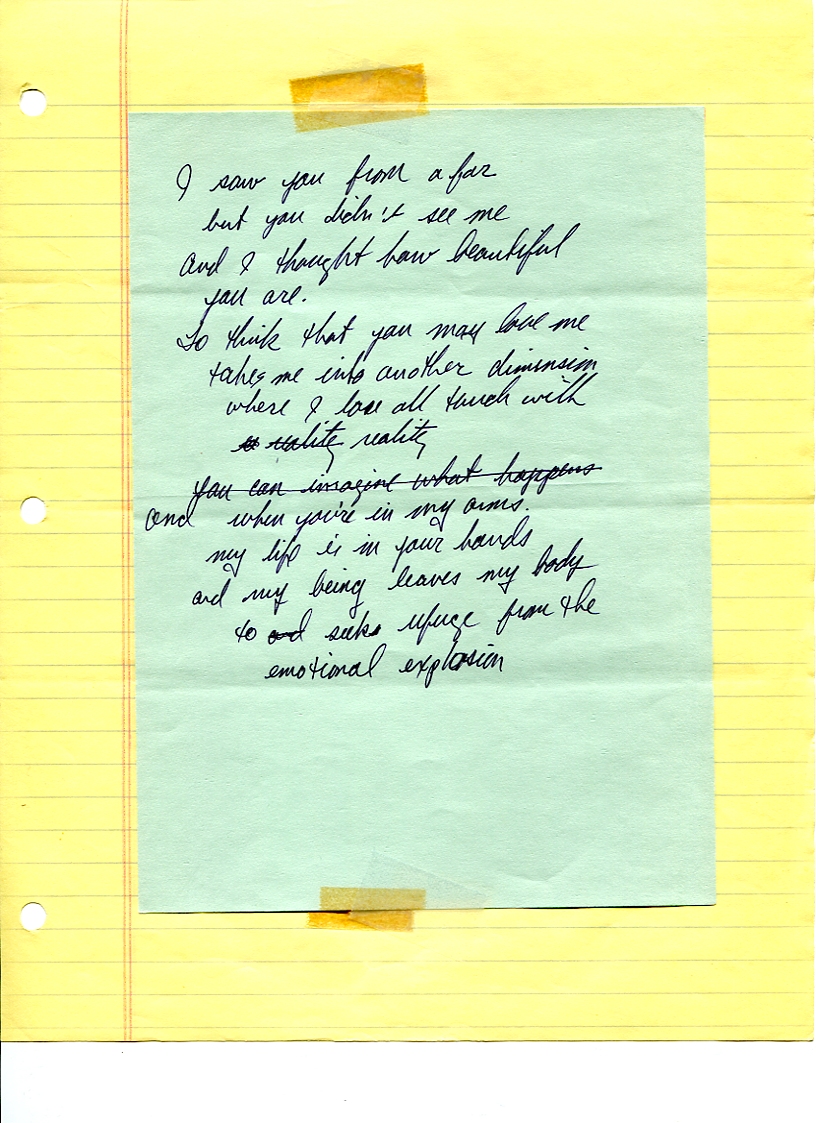 I saw you from a far
but you didn't see me
and I thought how beautiful
you are.
To think that you may love me
takes me into another dimension
where I lose all touch with
reality
you can imagine what happens
and when you're in my arms.
my life is in your hands
and my being leaves my body
to and seeks refuge from the
emotional explosion